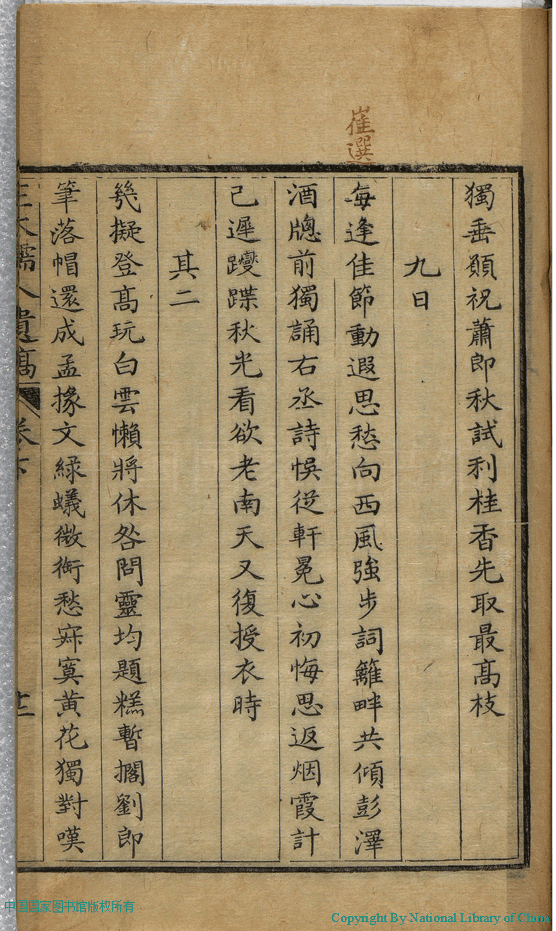 崔選
獨垂願祝蕭郎秋試利桂香先取最髙枝
九日
每逢佳節動遐思愁向西風強步詞籬畔共傾彭澤
酒牕前獨誦右丞詩悞從軒冕心初悔思返烟霞計
已遲躞蹀秋光看欲老南天又復授衣時
其二
幾擬登髙玩白雲懶將休咎問靈均題糕暫擱劉郎
筆落帽還成孟掾文綠蟻微銜愁寂寞黄花獨對嘆
孺人遺稾 卷下
中国国家图书馆版权所有
Copyright By National Library of China